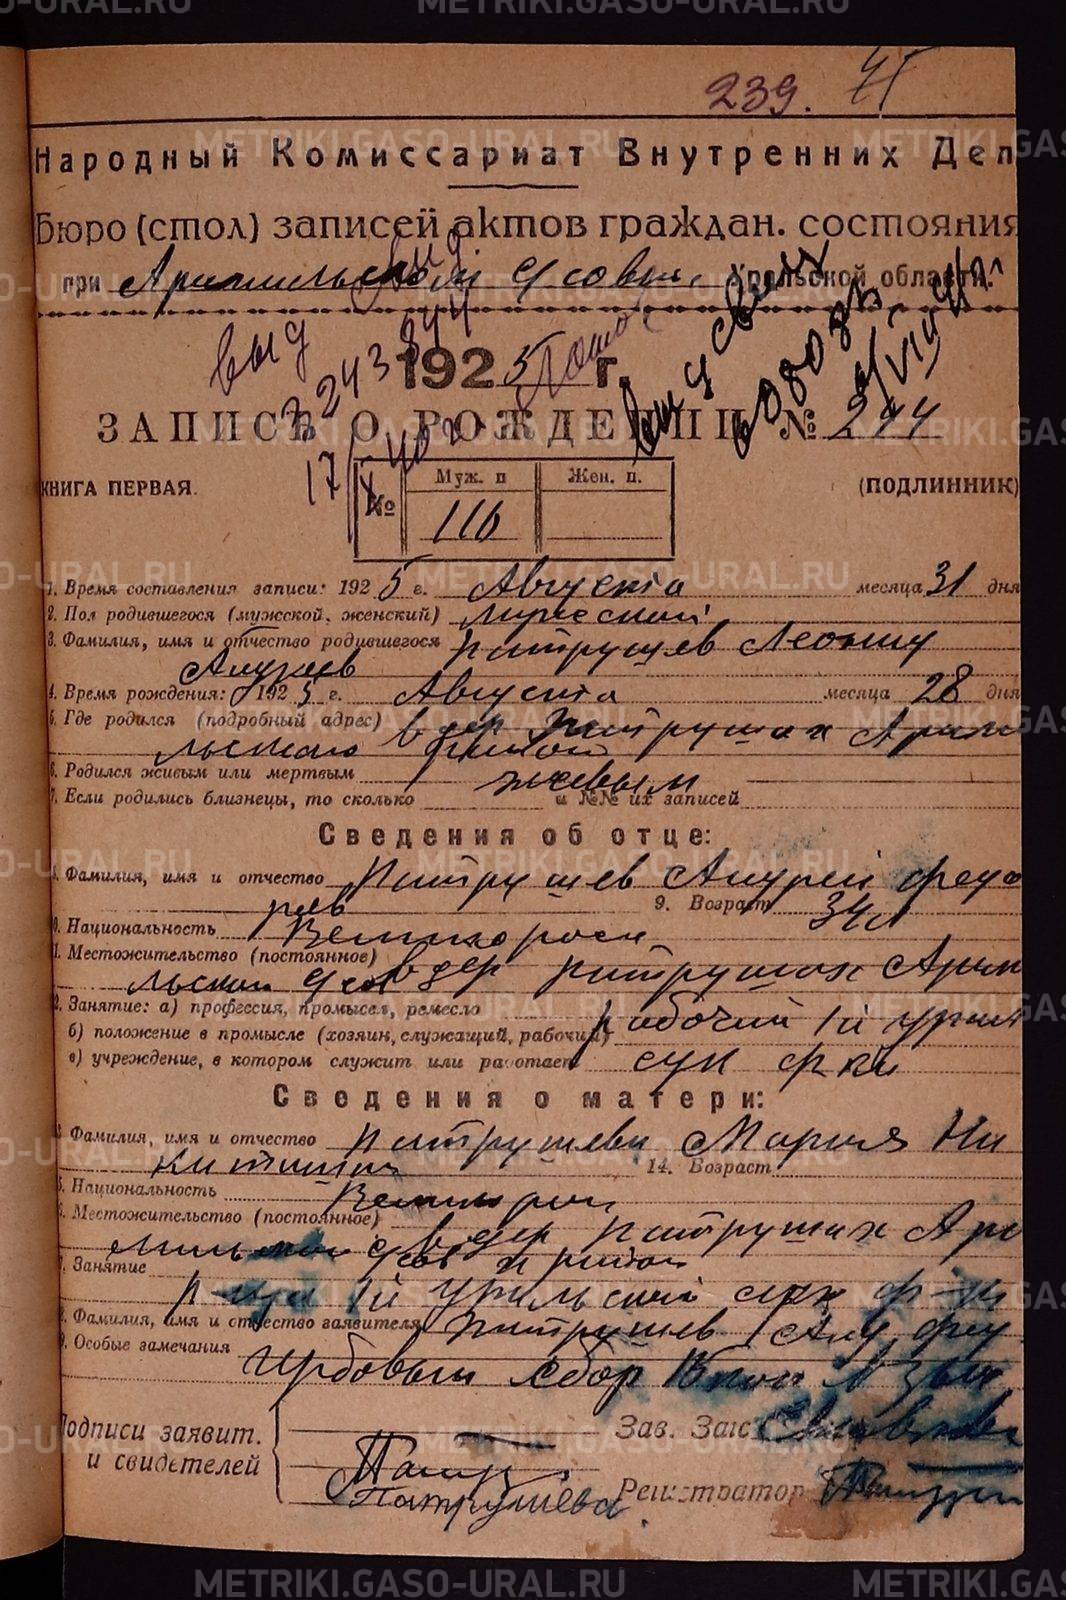 239.
Народный Комиссариат Внутренних Дел
Бюро (стол) записей актов граждан. состояния
при Арамильском Уральской области.
выд
1925 г.
ЗАПИСЬ О РОЖДЕНИИ № 244
КНИГА ПЕРВАЯ. (ПОДЛИННИК)
№ Муж. п Жен. п.
116
1. Время составления записи: 1925 г. Августа месяца 31 дня
2. Пол родившегося (мужской, женский) мужской
3. Фамилия, имя и отчество родившегося Патрушев Леонид
Андреев
4. Время рождения: 1925 г. Августа месяца 28 дня
5. Где родился (подробный адрес) в дер Патрушах Арами
льского района
6. Родился живым или мертвым живым
7. Если родились близнецы, то сколько и №№ их записей
Сведения об отце:
8. Фамилия, имя и отчество Патрушев Андрей Федо
ров 9. Возраст 34 л
10. Национальность Великоросс
11. Местожительство (постоянное) в дер Патрушах Арами
льский
12. Занятие: а) профессия, промысел, ремесло
б) положение в промысле (хозяин, служащий, рабочий) рабочий 1й Урал
в) учреждение, в котором служит или работает сук ф-ки
Сведения о матери:
13. Фамилия, имя и отчество Патрушева Мария Ни
китишна 14. Возраст
15. Национальность Великорос
16. Местожительство (постоянное) в дер Патрушах Ара
мильской
17. Занятие
1й Уральской сук ф-ки
18. Фамилия, имя и отчество заявителя Патрушев Анд Фед
19. Особые замечания Гербовый сбор
Подписи заявит.
и свидетелей
Зав. Загс
Патрушева
Регистратор
METRIKI.GASO-URAL.RU